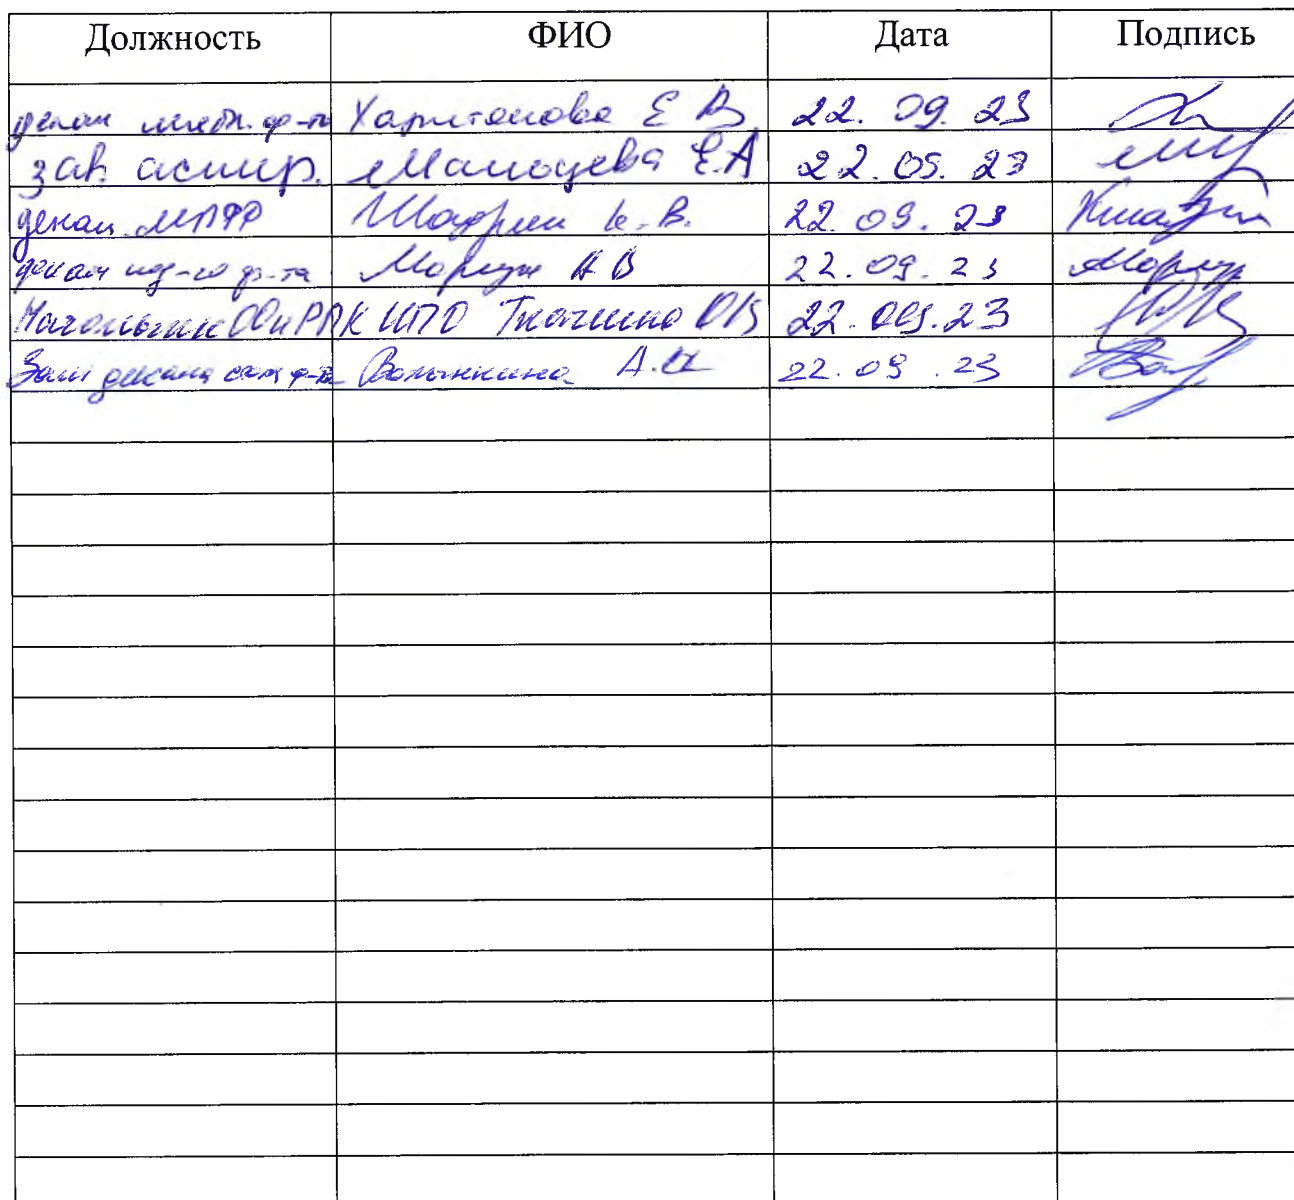 Должность ФИО Дата Подпись
декан леч. ф-та Харитонова Е В 22. 09. 23
зав. аспир. Мальцева Е.А 22. 09. 23
декан МПФ Шадрин К.В. 22. 09. 23
декан ф-та А В 22. 09. 23
Начальник ООиРПК ИПО О В 22. 09. 23
Зам декана стом ф-та Волынкина А.И 22. 09. 23